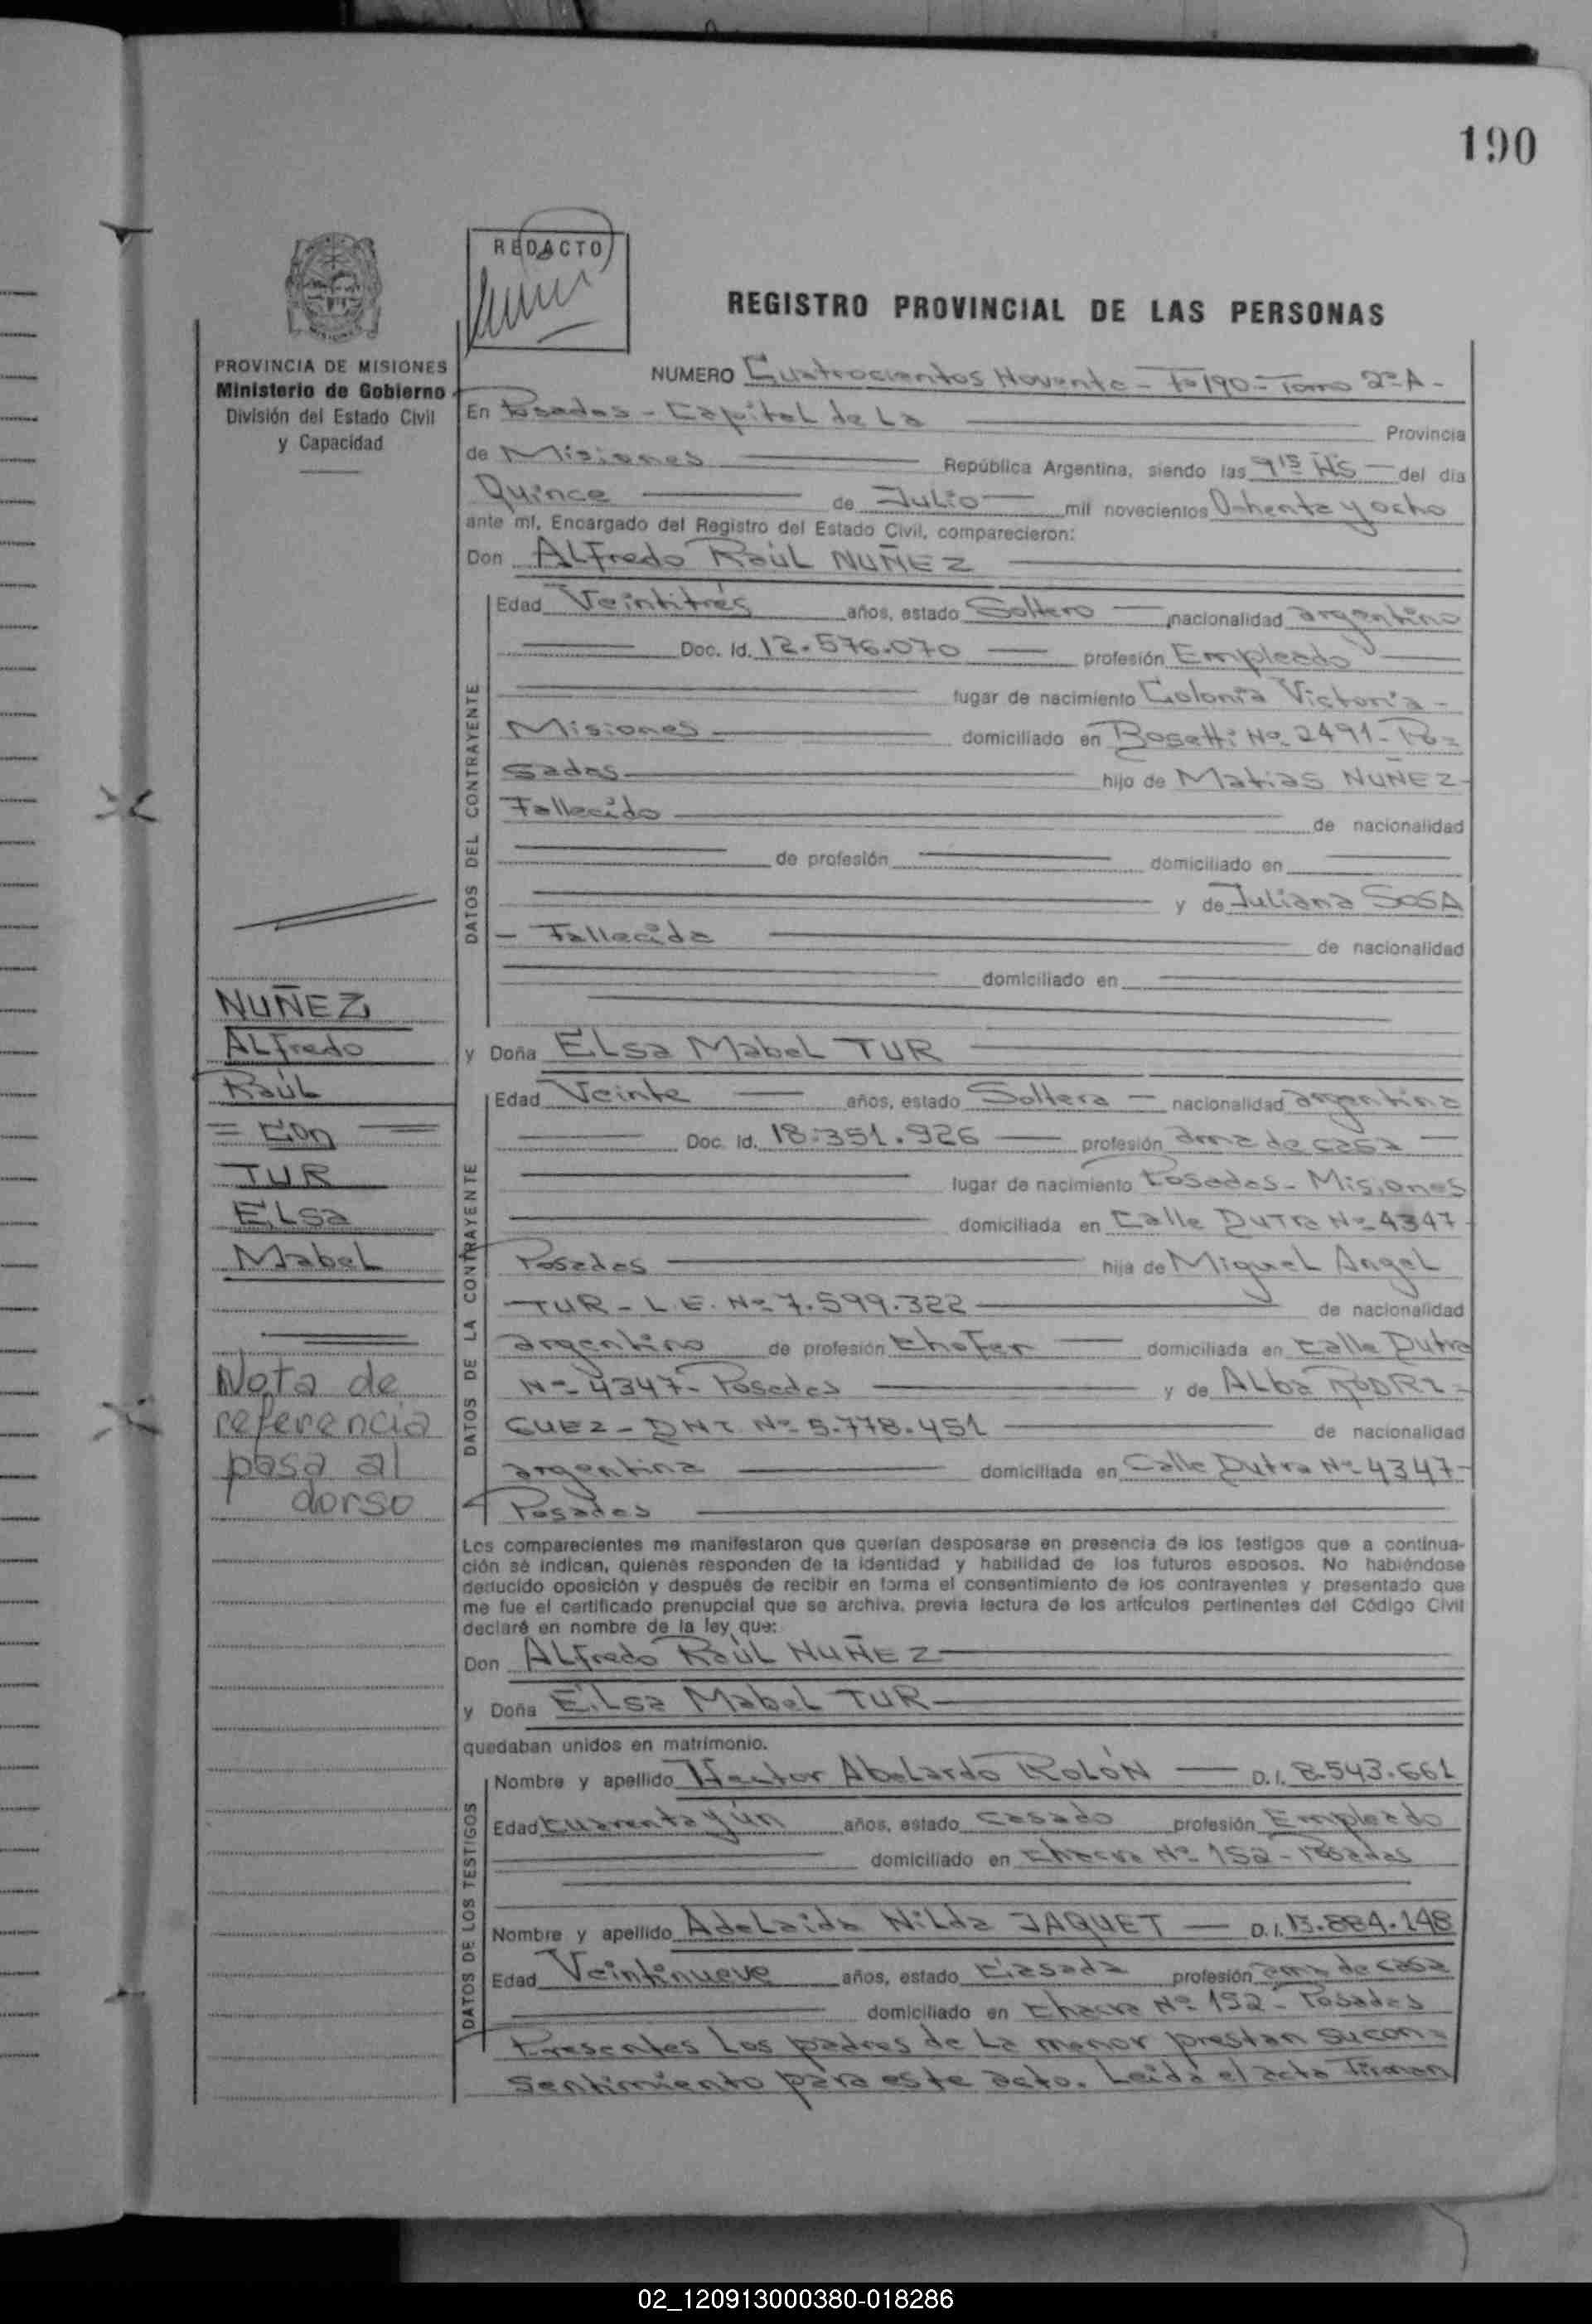 190
REDACTO
REGISTRO PROVINCIAL DE LAS PERSONAS
PROVINCIA DE MISIONES
Ministerio de Gobierno
División del Estado Civil
y Capacidad
NUMERO Cuatrocientos Noventa - Fº 190 - Tomo 2º A -
En Posadas - Capital de La Provincia
de Misiones República Argentina, siendo las 9 15 Hs del día
Quince de Julio mil novecientos Ochenta y ocho
ante mí, Encargado del Registro del Estado Civil, comparecieron:
Don ALfredo Raúl NUÑEZ
DATOS DEL CONTRAYENTE
Edad Veintitrés años, estado Soltero nacionalidad argentino
Doc. Id. 12.576.070 profesión Empleado
lugar de nacimiento Colonia Victoria -
Misiones domiciliado en Bosetti Nº 2491 - Po=
sadas hijo de Matias NUÑEZ -
Fallecido de nacionalidad
de profesión domiciliado en
y de Juliana SOSA
- Fallecida de nacionalidad
domiciliado en
y Doña ELsa MabeL TUR
DATOS DE LA CONTRAYENTE
Edad Veinte años, estado Soltera nacionalidad argentina
Doc. Id. 18.351.926 profesión ama de casa
lugar de nacimiento Posadas - Misiones
domiciliada en Calle Dutra Nº 4347 -
Posadas hija de MigueL AngeL
TUR - L.E. Nº 7.599.322 de nacionalidad
argentino de profesión Chofer domiciliada en Calle Dutra
Nº 4347 - Posadas y de ALba RODRI=
GUEZ - DNI Nº 5.778.451 de nacionalidad
argentina domiciliada en Calle Dutra Nº 4347 -
Posadas
NUÑEZ
ALfredo
Raúl
= Con =
TUR
ELsa
MabeL
Nota de
referencia
pasa al
dorso
Los comparecientes me manifestaron que querían desposarse en presencia de los testigos que a continua-
ción se indican, quienes responden de la identidad y habilidad de los futuros esposos. No habiéndose
deducido oposición y después de recibir en forma el consentimiento de los contrayentes y presentado que
me fue el certificado prenupcial que se archiva, previa lectura de los artículos pertinentes del Código Civil
declaré en nombre de la ley que:
Don ALfredo Raúl NUÑEZ
y Doña ELsa MabeL TUR
quedaban unidos en matrimonio.
DATOS DE LOS TESTIGOS
Nombre y apellido Hector AbeLardo ROLÓN D.I. 8.543.661
Edad Cuarenta y ún años, estado Casado profesión Empleado
domiciliado en Chacra Nº 152 - Posadas
Nombre y apellido AdeLaida NiLda JAQUET D.I. 13.884.148
Edad Veintinueve años, estado Casada profesión ama de casa
domiciliado en Chacra Nº 152 - Posadas
Presentes Los padres de La menor prestan su con=
sentimiento para este acto. Leida el acta Firman
02_120913000380-018286